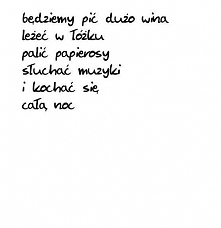 będziemy pić dużo wina
leżeć w łóżku
palić papierosy
słuchać muzyki
i kochać się
całą noc